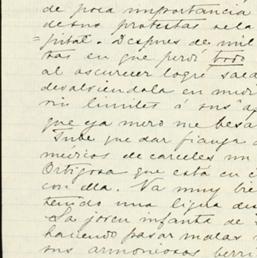 de poca importancia
de sus protestas a la
=pital. Despues de mil
tas en que perdí todo
al oscurecer logré saca
desaliendola en medi
sin limites á sus ap
que ya mero me besa
Tube que dar fianza á
médicos de carceles un
Ortigosa que está en c
con ella. Va muy bie
tendo una ligera des
La joven infanta de
haciendo pasar malas n
sus armoniosos berri